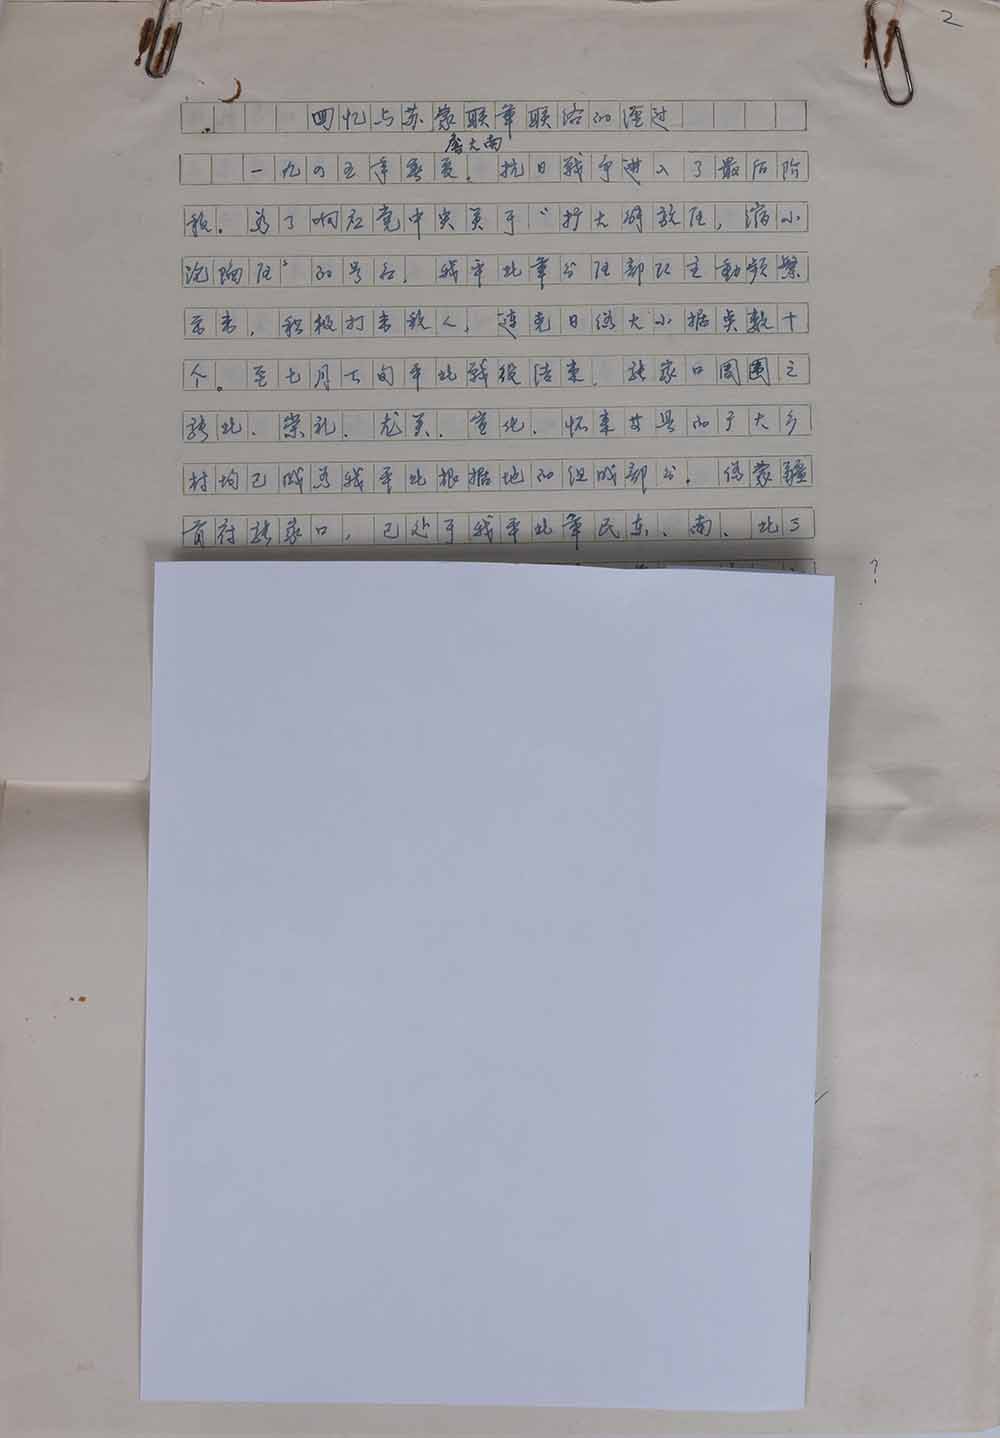 2
回忆与苏蒙联军联络的经过
詹大南
一九四五年春夏,抗日战争进入了最后阶
段。为了响应党中央关于“扩大解放区,缩小
沦陷区”的号召,我平北军分区部队主动频繁
出击,积极打击敌人,连克日伪大小据点数十
个。至七月下旬平北战役结束,张家口周围之
张北、崇礼、龙关、宣化、怀来等县的广大乡
村均已成为我平北根据地的组成部分。伪蒙疆
首府张家口,已处于我平北军民东、南、北三
?